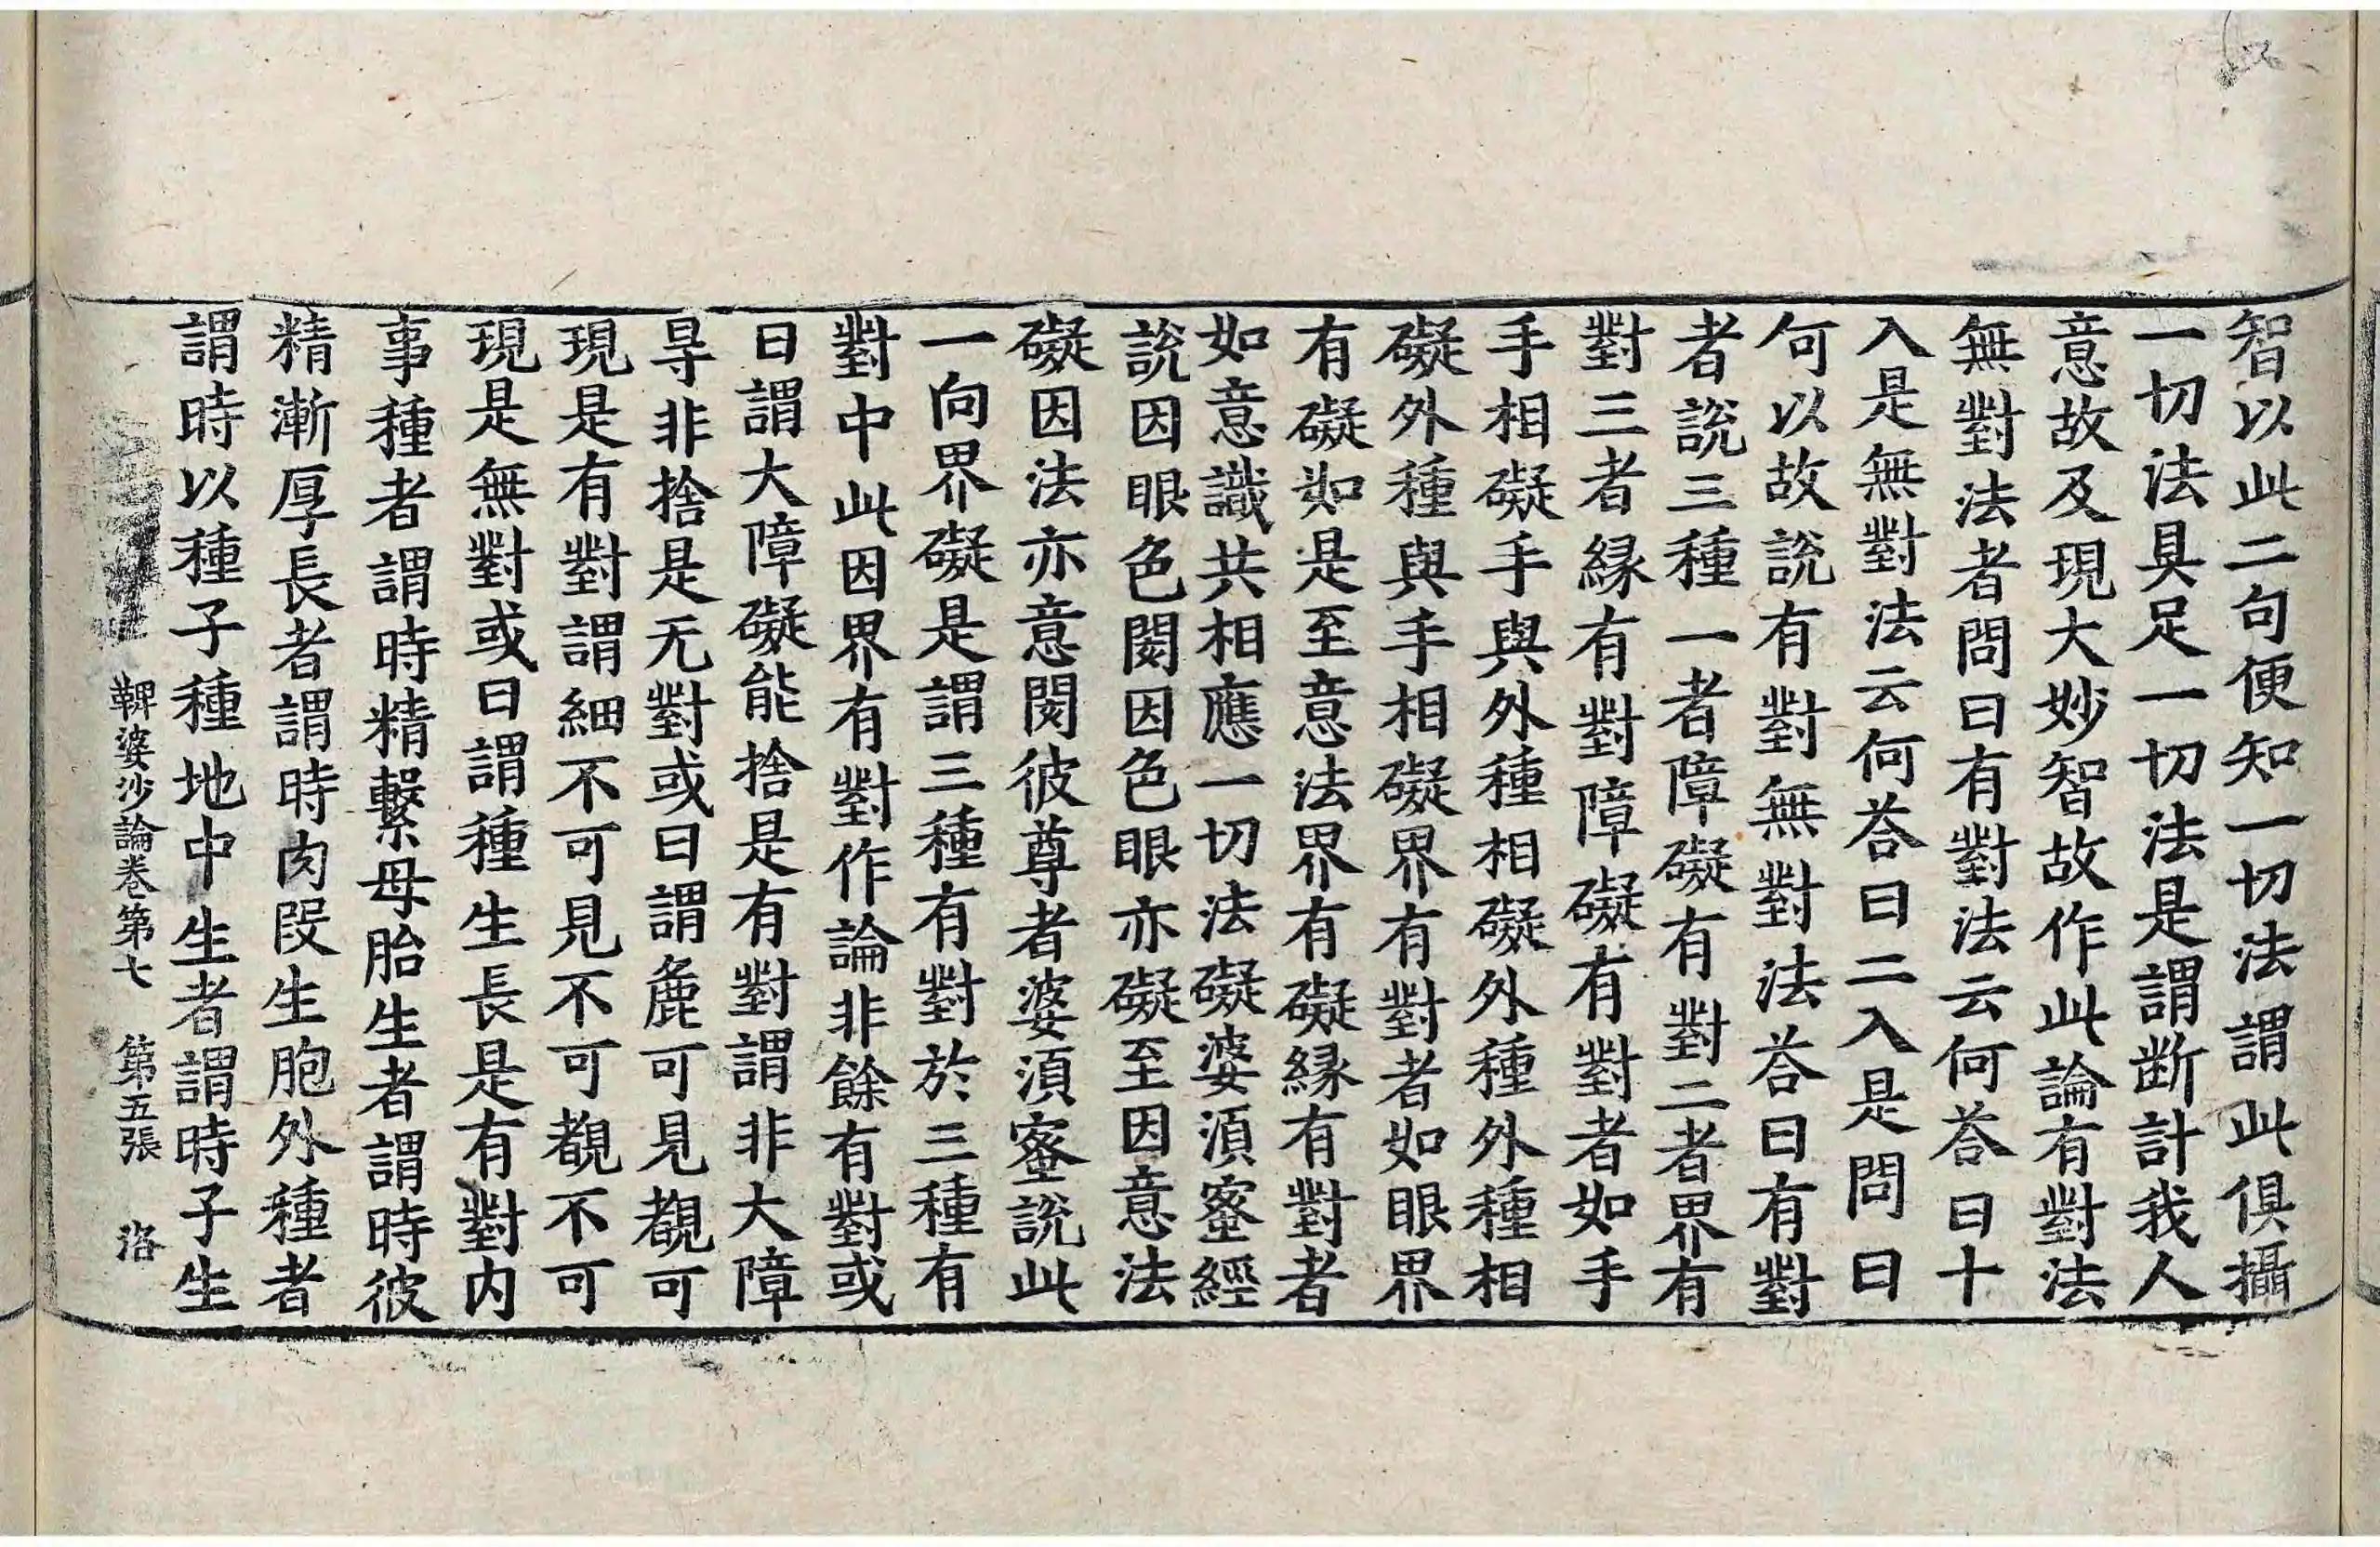 智以此二句便知一切法謂此俱攝
一切法具足一切法是謂断計我人
意故及現大妙智故作此論有對法
無對法者問曰有對法云何荅曰十
入是無對法云何荅曰二入是問曰
何以故說有對無對法荅曰有對
者說三種一者障礙有對二者界有
對三者緣有對障礙有對者如手
手相礙手與外種相礙外種外種相
礙外種與手相礙界有對者如眼界
有礙如是至意法界有礙緣有對者
如意識共相應一切法礙婆須蜜經
說因眼色閡因色眼亦礙至因意法
礙因法亦意閡彼尊者婆須蜜說此
一向界礙是謂三種有對於三種有
對中此因界有對作論非餘有對或
曰謂大障礙能捨是有對謂非大障
㝵非捨是无對或曰謂麁可見覩可
現是有對謂細不可見不可覩不可
現是無對或曰謂種生長是有對内
事種者謂時精繫母胎生者謂時彼
精漸厚長者謂時肉段生胞外種者
謂時以種子種地中生者謂時子生
鞞婆沙論卷第七　第五張　洛